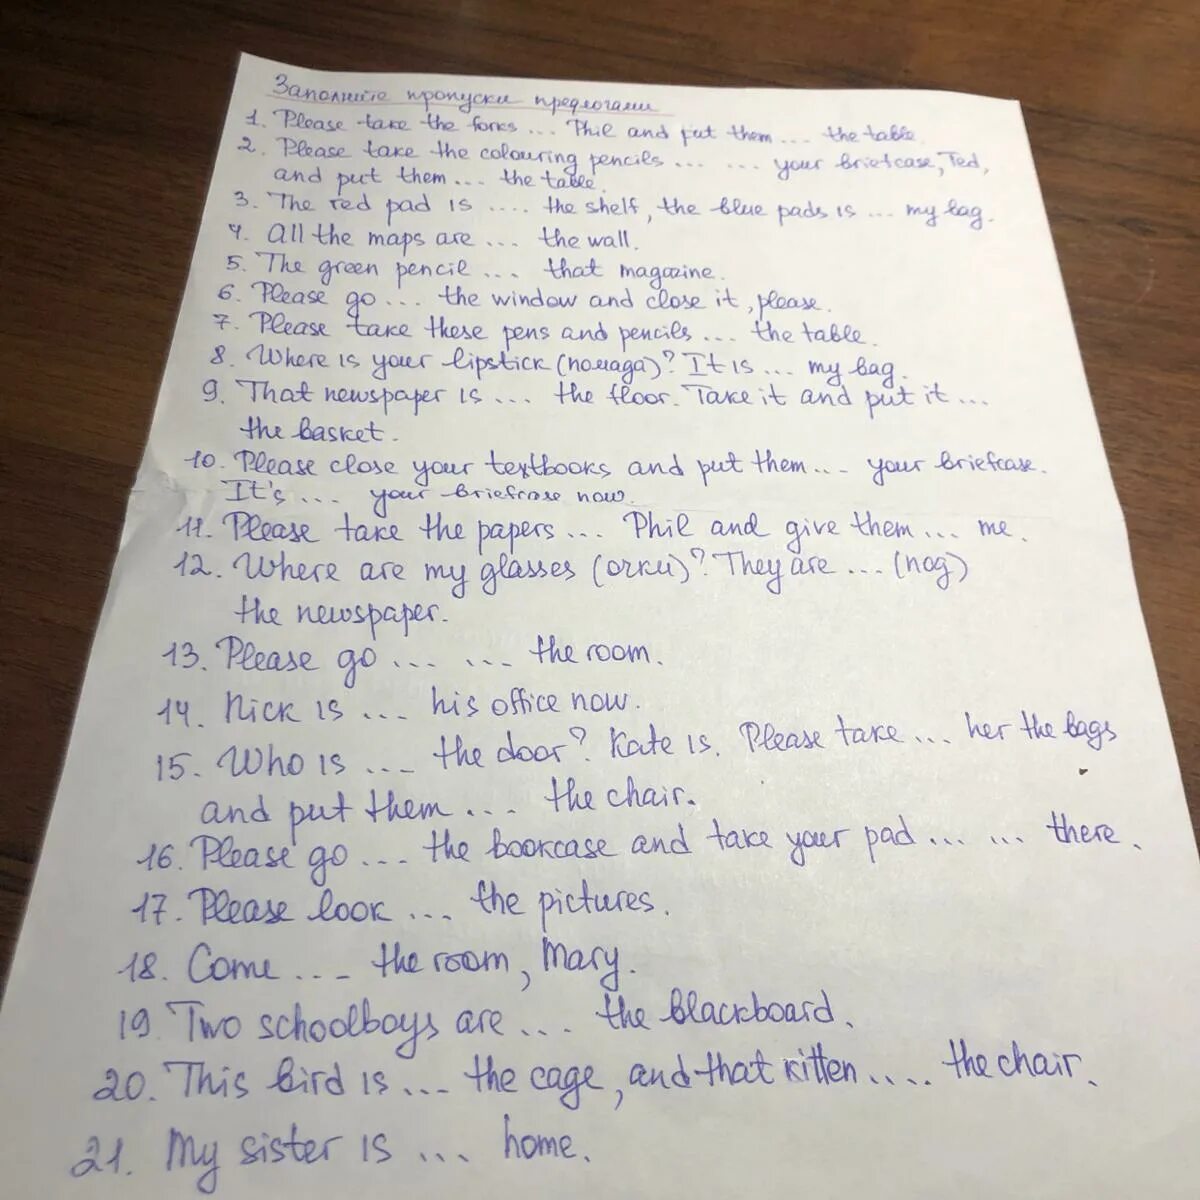 Заполните пропуски предлогами
1. Please take the forks ... Phil and put them ... the table.
2. Please take the colouring pencils ... ... your briefcase, Ted,
and put them ... the table.
3. The red pad is .... the shelf, the blue pads is ... my bag.
4. All the maps are ... the wall.
5. The green pencil ... that magazine.
6. Please go ... the window and close it, please.
7. Please take these pens and pencils ... the table.
8. Where is your lipstick (помада)? It is ... my bag.
9. That newspaper is ... the floor. Take it and put it ...
the basket.
10. Please close your textbooks and put them ... your briefcase.
It's ... your briefcase now.
11. Please take the papers ... Phil and give them ... me.
12. Where are my glasses (очки)? They are ... (под)
the newspaper.
13. Please go ... ... the room.
14. Nick is ... his office now.
15. Who is ... the door? Kate is. Please take ... her the bags
and put them ... the chair.
16. Please go ... the bookcase and take your pad ... ... there.
17. Please look ... the pictures.
18. Come ... the room, Mary.
19. Two schoolboys are ... the blackboard.
20. This bird is ... the cage, and that kitten .... the chair.
21. My sister is ... home.